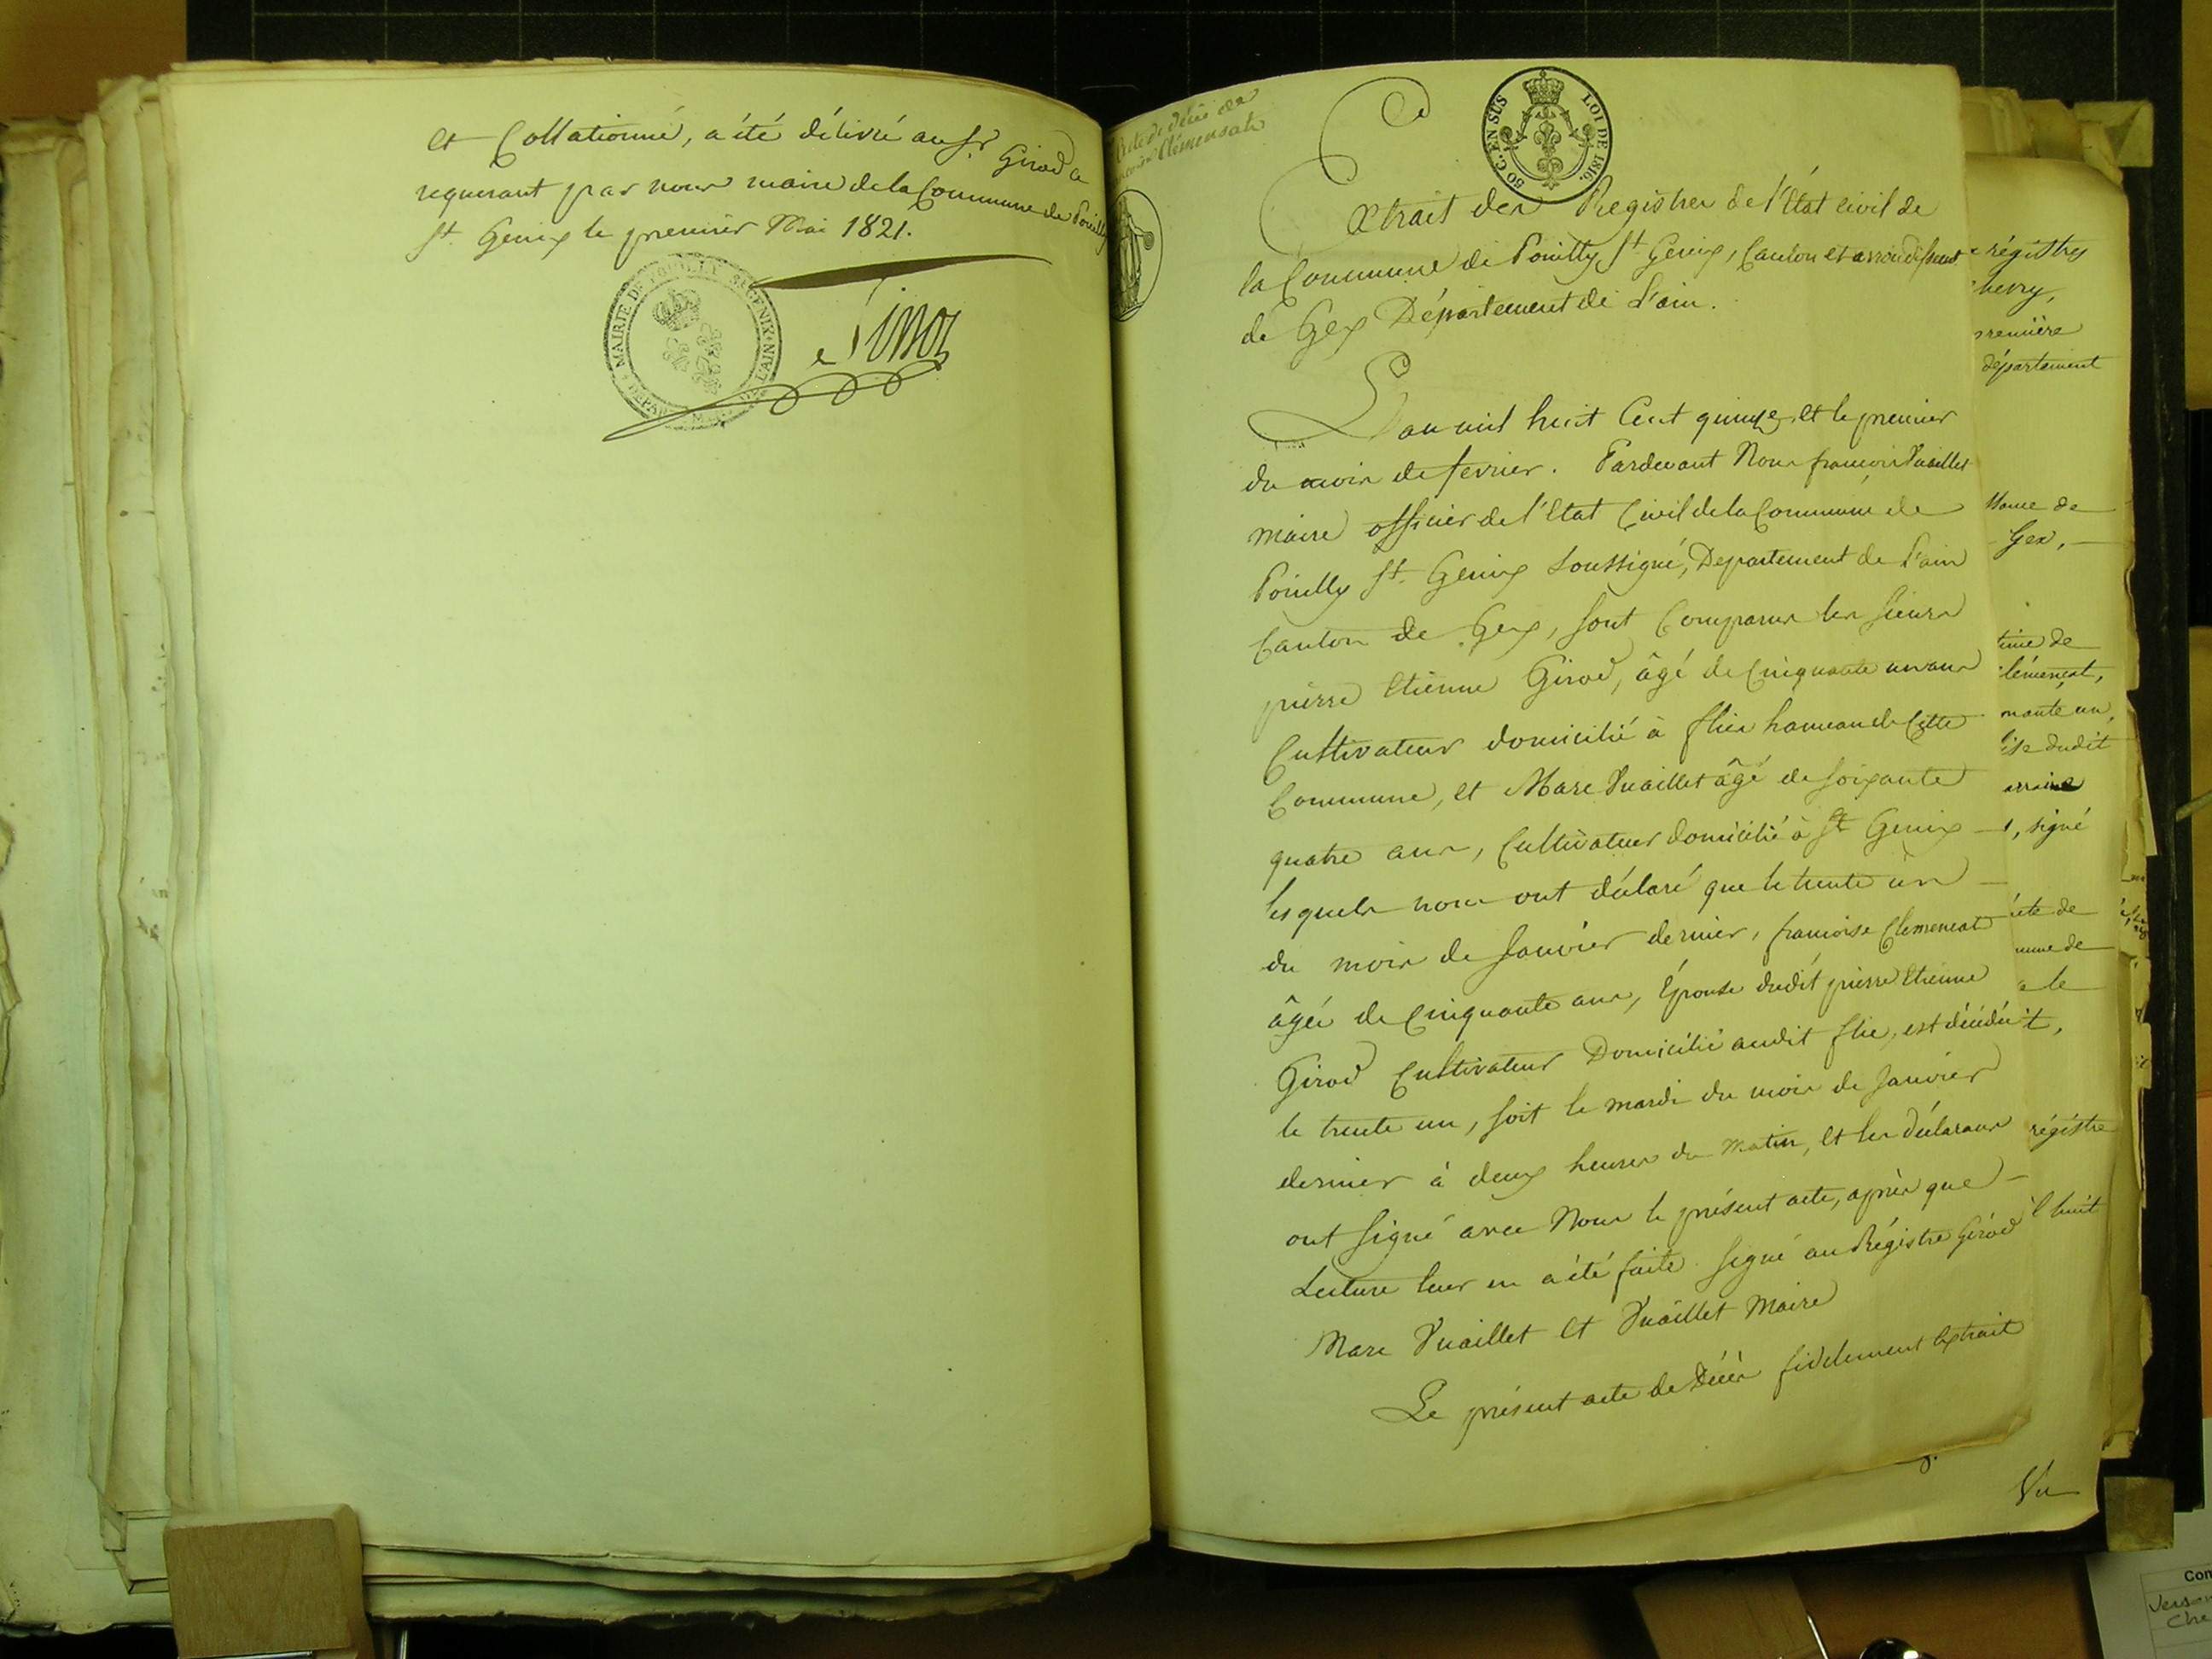 et Collationné, a été délivré au Sr. Girod ce
requerant par nous maire de la Commune de Pouilly
St. Genix le premier Mai 1821.
MAIRIE DE POUILLY St GENIX
DEPARTEMENT DE L'AIN
Acte de décès de
Clémensat
50 C. EN SUS
LOI DE 1816.
Extrait des Registres de l'État civil de
la Commune de Pouilly St Genix, Canton et arrondissent
de Gex Département de l'ain.
L'an mil huit Cent quinze, et le premier
du mois de fevrier. Pardevant Nous françois Vuaillet
maire officier de l'Etat Civil de la Commune de
Pouilly St. Genix Soussigné, Departement de l'ain
Canton de Gex, sont Comparus les sieurs
pierre Etienne Girod, âgé de Cinquante un ans
Cultivateur domicilié à flies hameau de Cette
Commune, et Marc Vuaillet âgé de soixante
quatre ans, Cultivateur domicilié à St Genix
lesquels nous ont déclaré que le trente un
du mois de Janvier dernier, françoise Clemencat
âgée de Cinquante ans, Épouse dudit pierre Etienne
Girod Cultivateur Domicilié audit flie, est décédée
le trente un, soit le mardi du mois de Janvier
dernier à deux heures du matin, et les déclarans
ont signé avec Nous le présent acte, après que
Lecture leur en a été faite. Signé au Régistre Girod
Marc Vuaillet et Vuaillet Maire
Le présent acte de Décès fidelement Extrait
régistres
première
département
Gex,
dudit
signé
régistre
huit
Vu